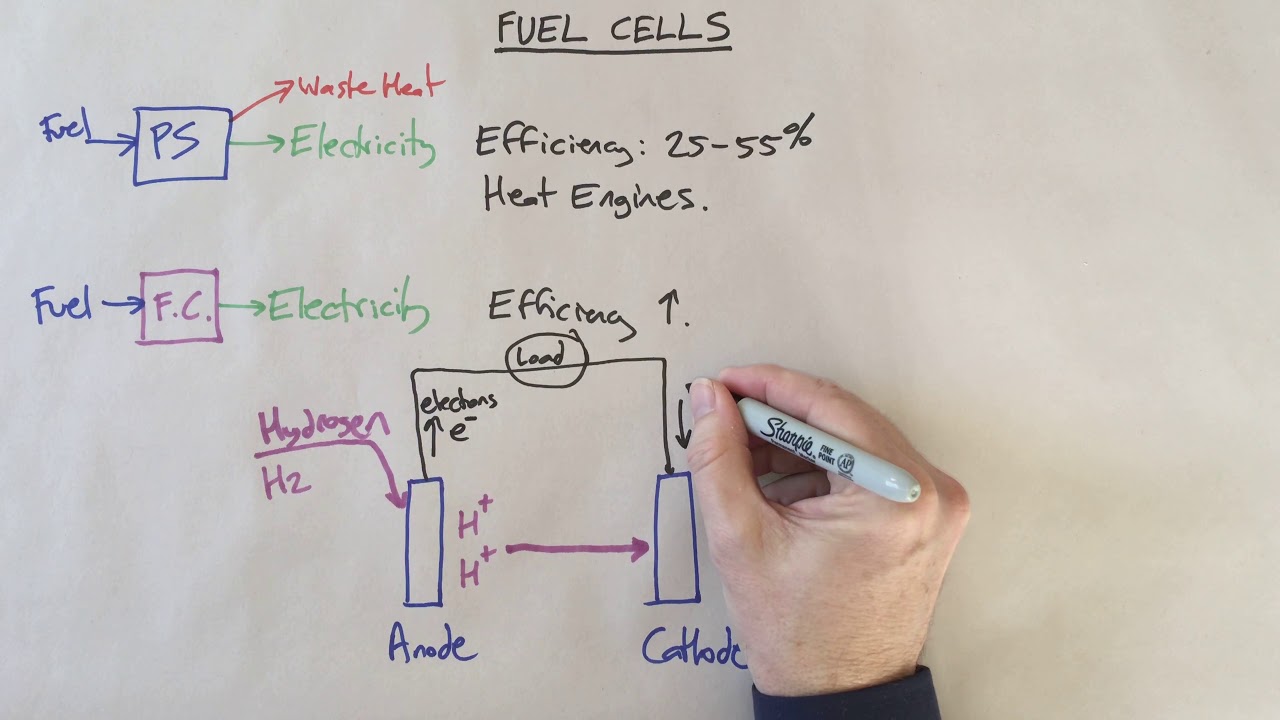 FUEL CELLS
Waste Heat
Fuel
PS
Electricity
Efficiency: 25-55%
Heat Engines.
Fuel
F.C.
Electricity
Efficiency ↑.
Load
electrons
↑ e⁻
Hydrogen
H2
H⁺
H⁺
Anode
Cathode
Sharpie
FINE POINT
AP